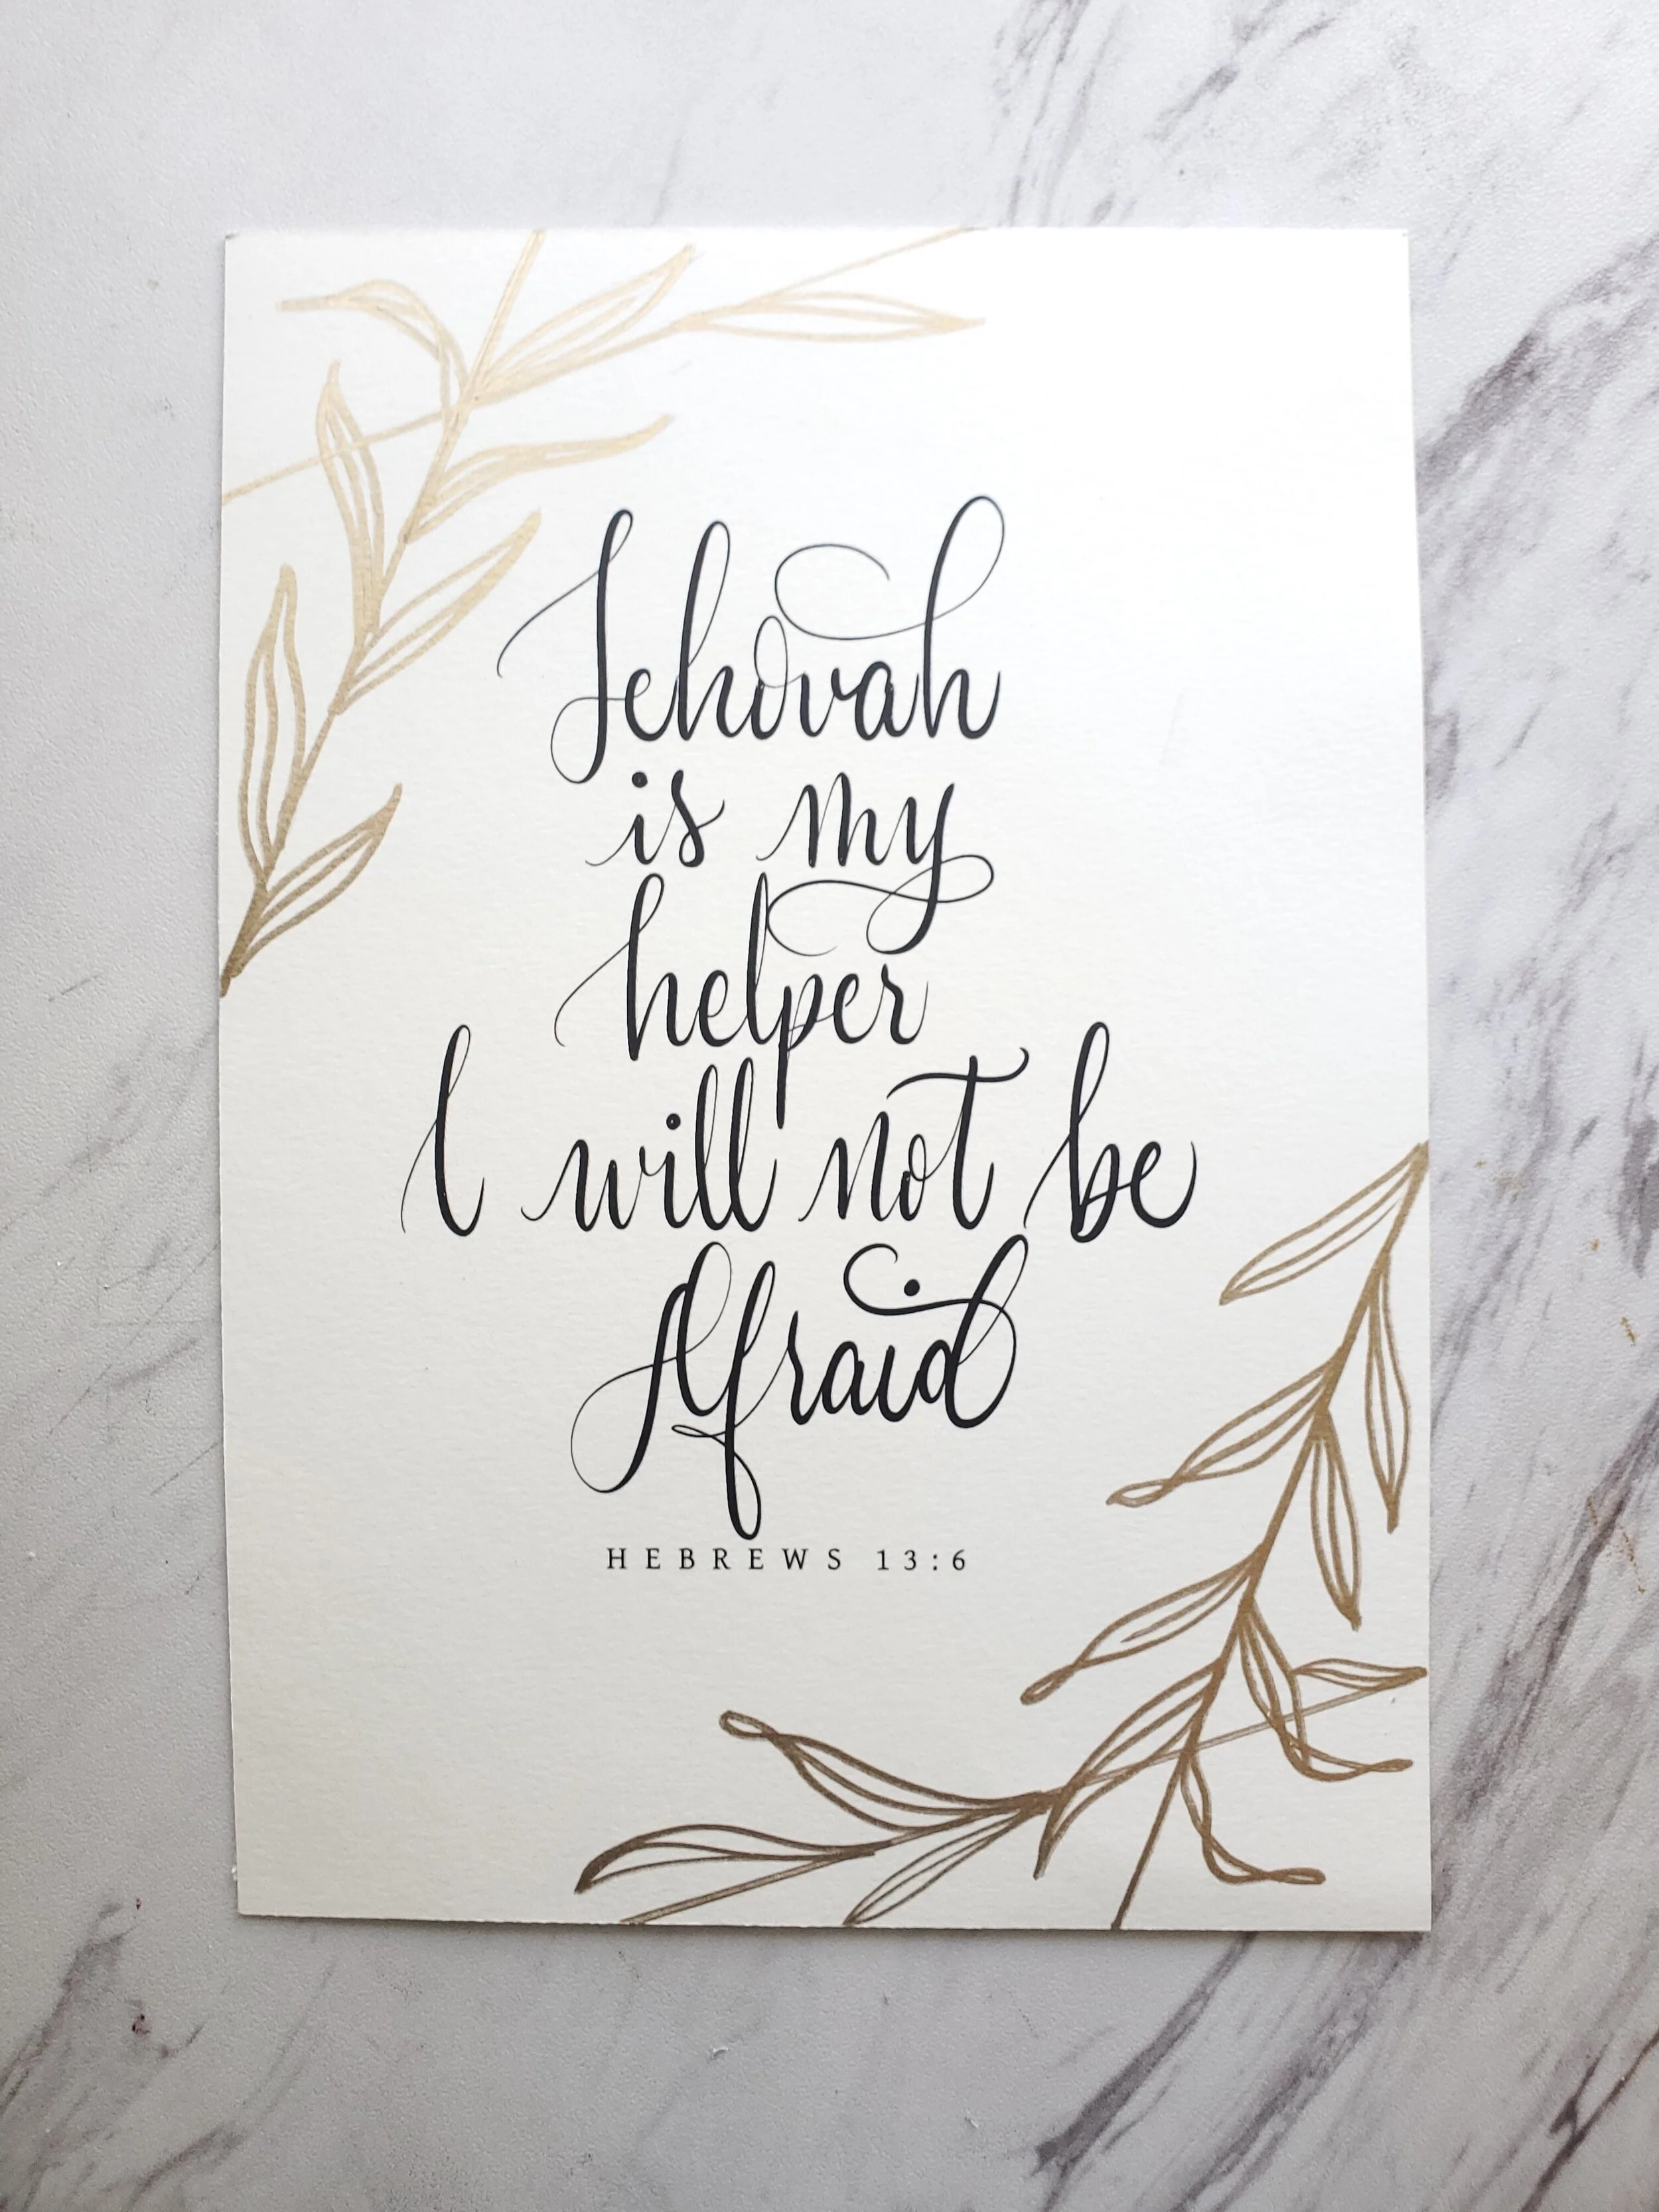 Jehovah
is my
helper
I will not be
Afraid
HEBREWS 13:6